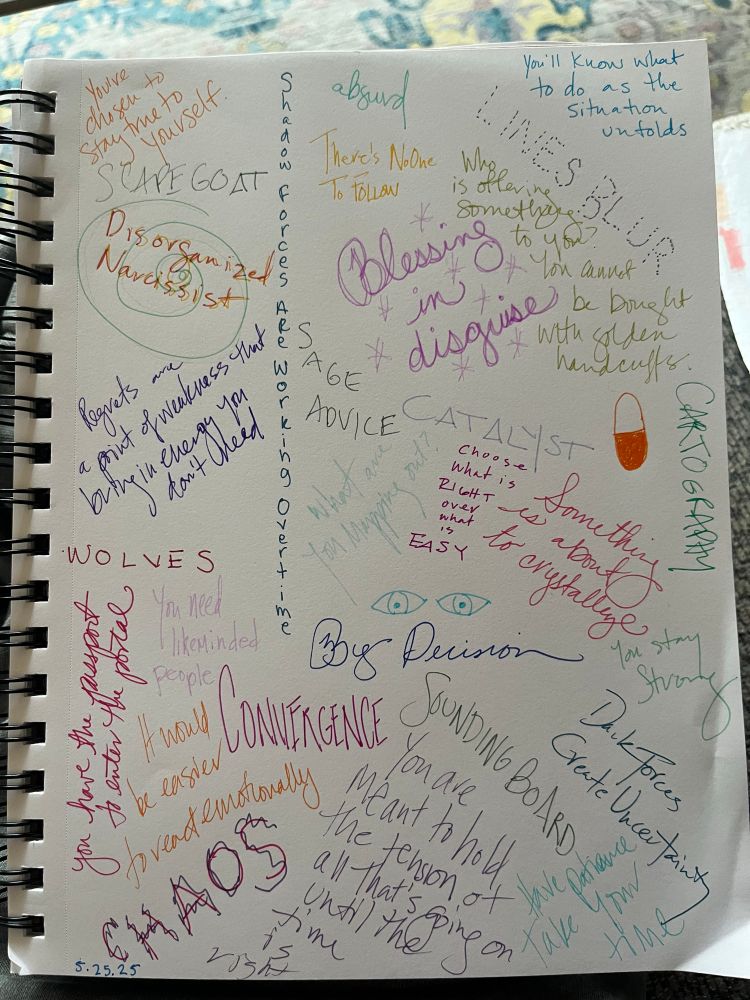 You've
chosen to
stay true to
yourself.
SCAPEGOAT
Disorganized
Narcissist
Regrets are
a point of weakness that
bring in energy you
don't need
WOLVES
Shadow Forces Are Working Overtime
absurd
There's No One
To Follow
You'll know what
to do as the
situation
unfolds
LINES BLUR
Who
is offering
something
to you?
You cannot
be bought
with golden
handcuffs.
Blessing
in
disguise
SAGE
ADVICE
CATALYST
CARTOGRAPHY
What are
you mapping out?
Choose
what is
RIGHT
over
what
is
EASY
Something
is about
to crystallize
You have the passport
to enter the portal
You need
likeminded
people
Big Decision
You stay
Strong
CONVERGENCE
It would
be easier
to react emotionally
SOUNDING BOARD
Dark Forces
Create Uncertainty
CHAOS
You are
meant to hold
the tension of
all that's going on
until the
time
is
right
Have patience
take your
time
5.25.25